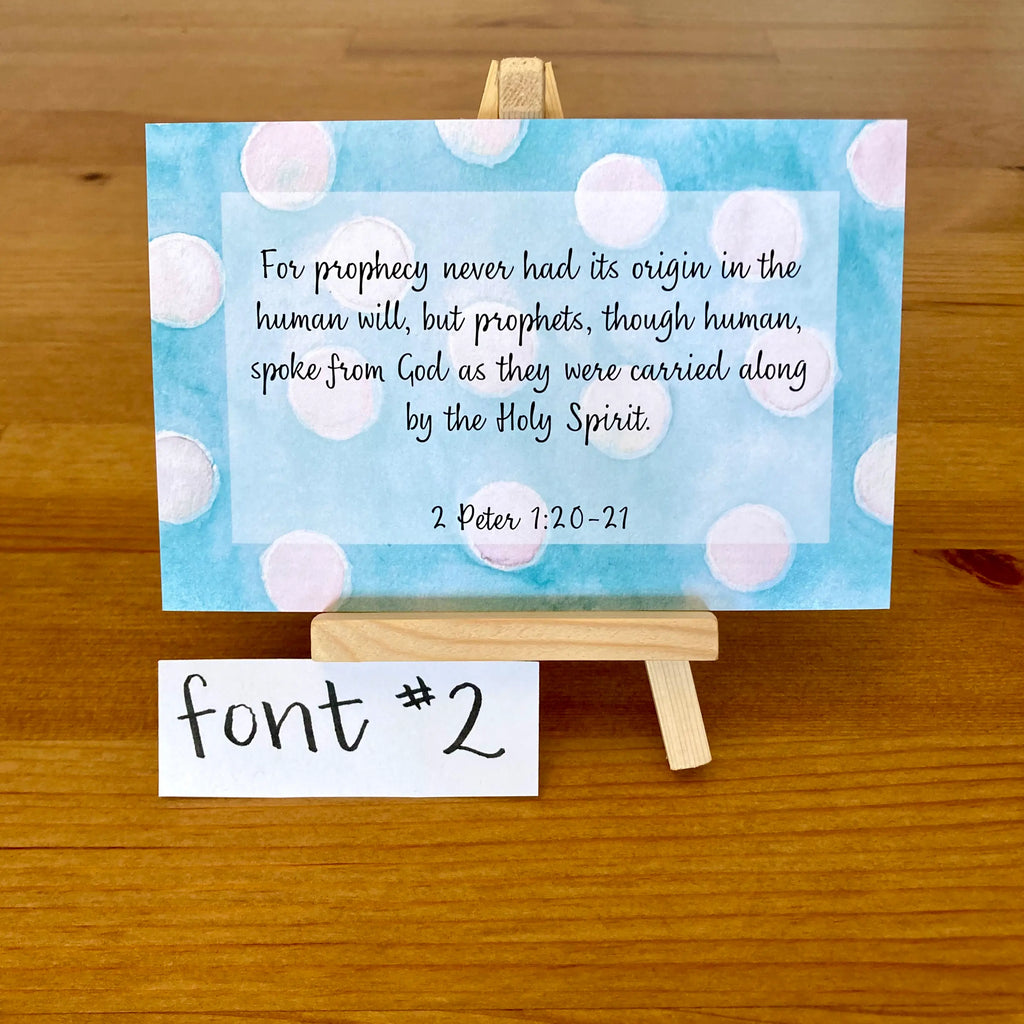 For prophecy never had its origin in the
human will, but prophets, though human,
spoke from God as they were carried along
by the Holy Spirit.
2 Peter 1:20-21
font #2